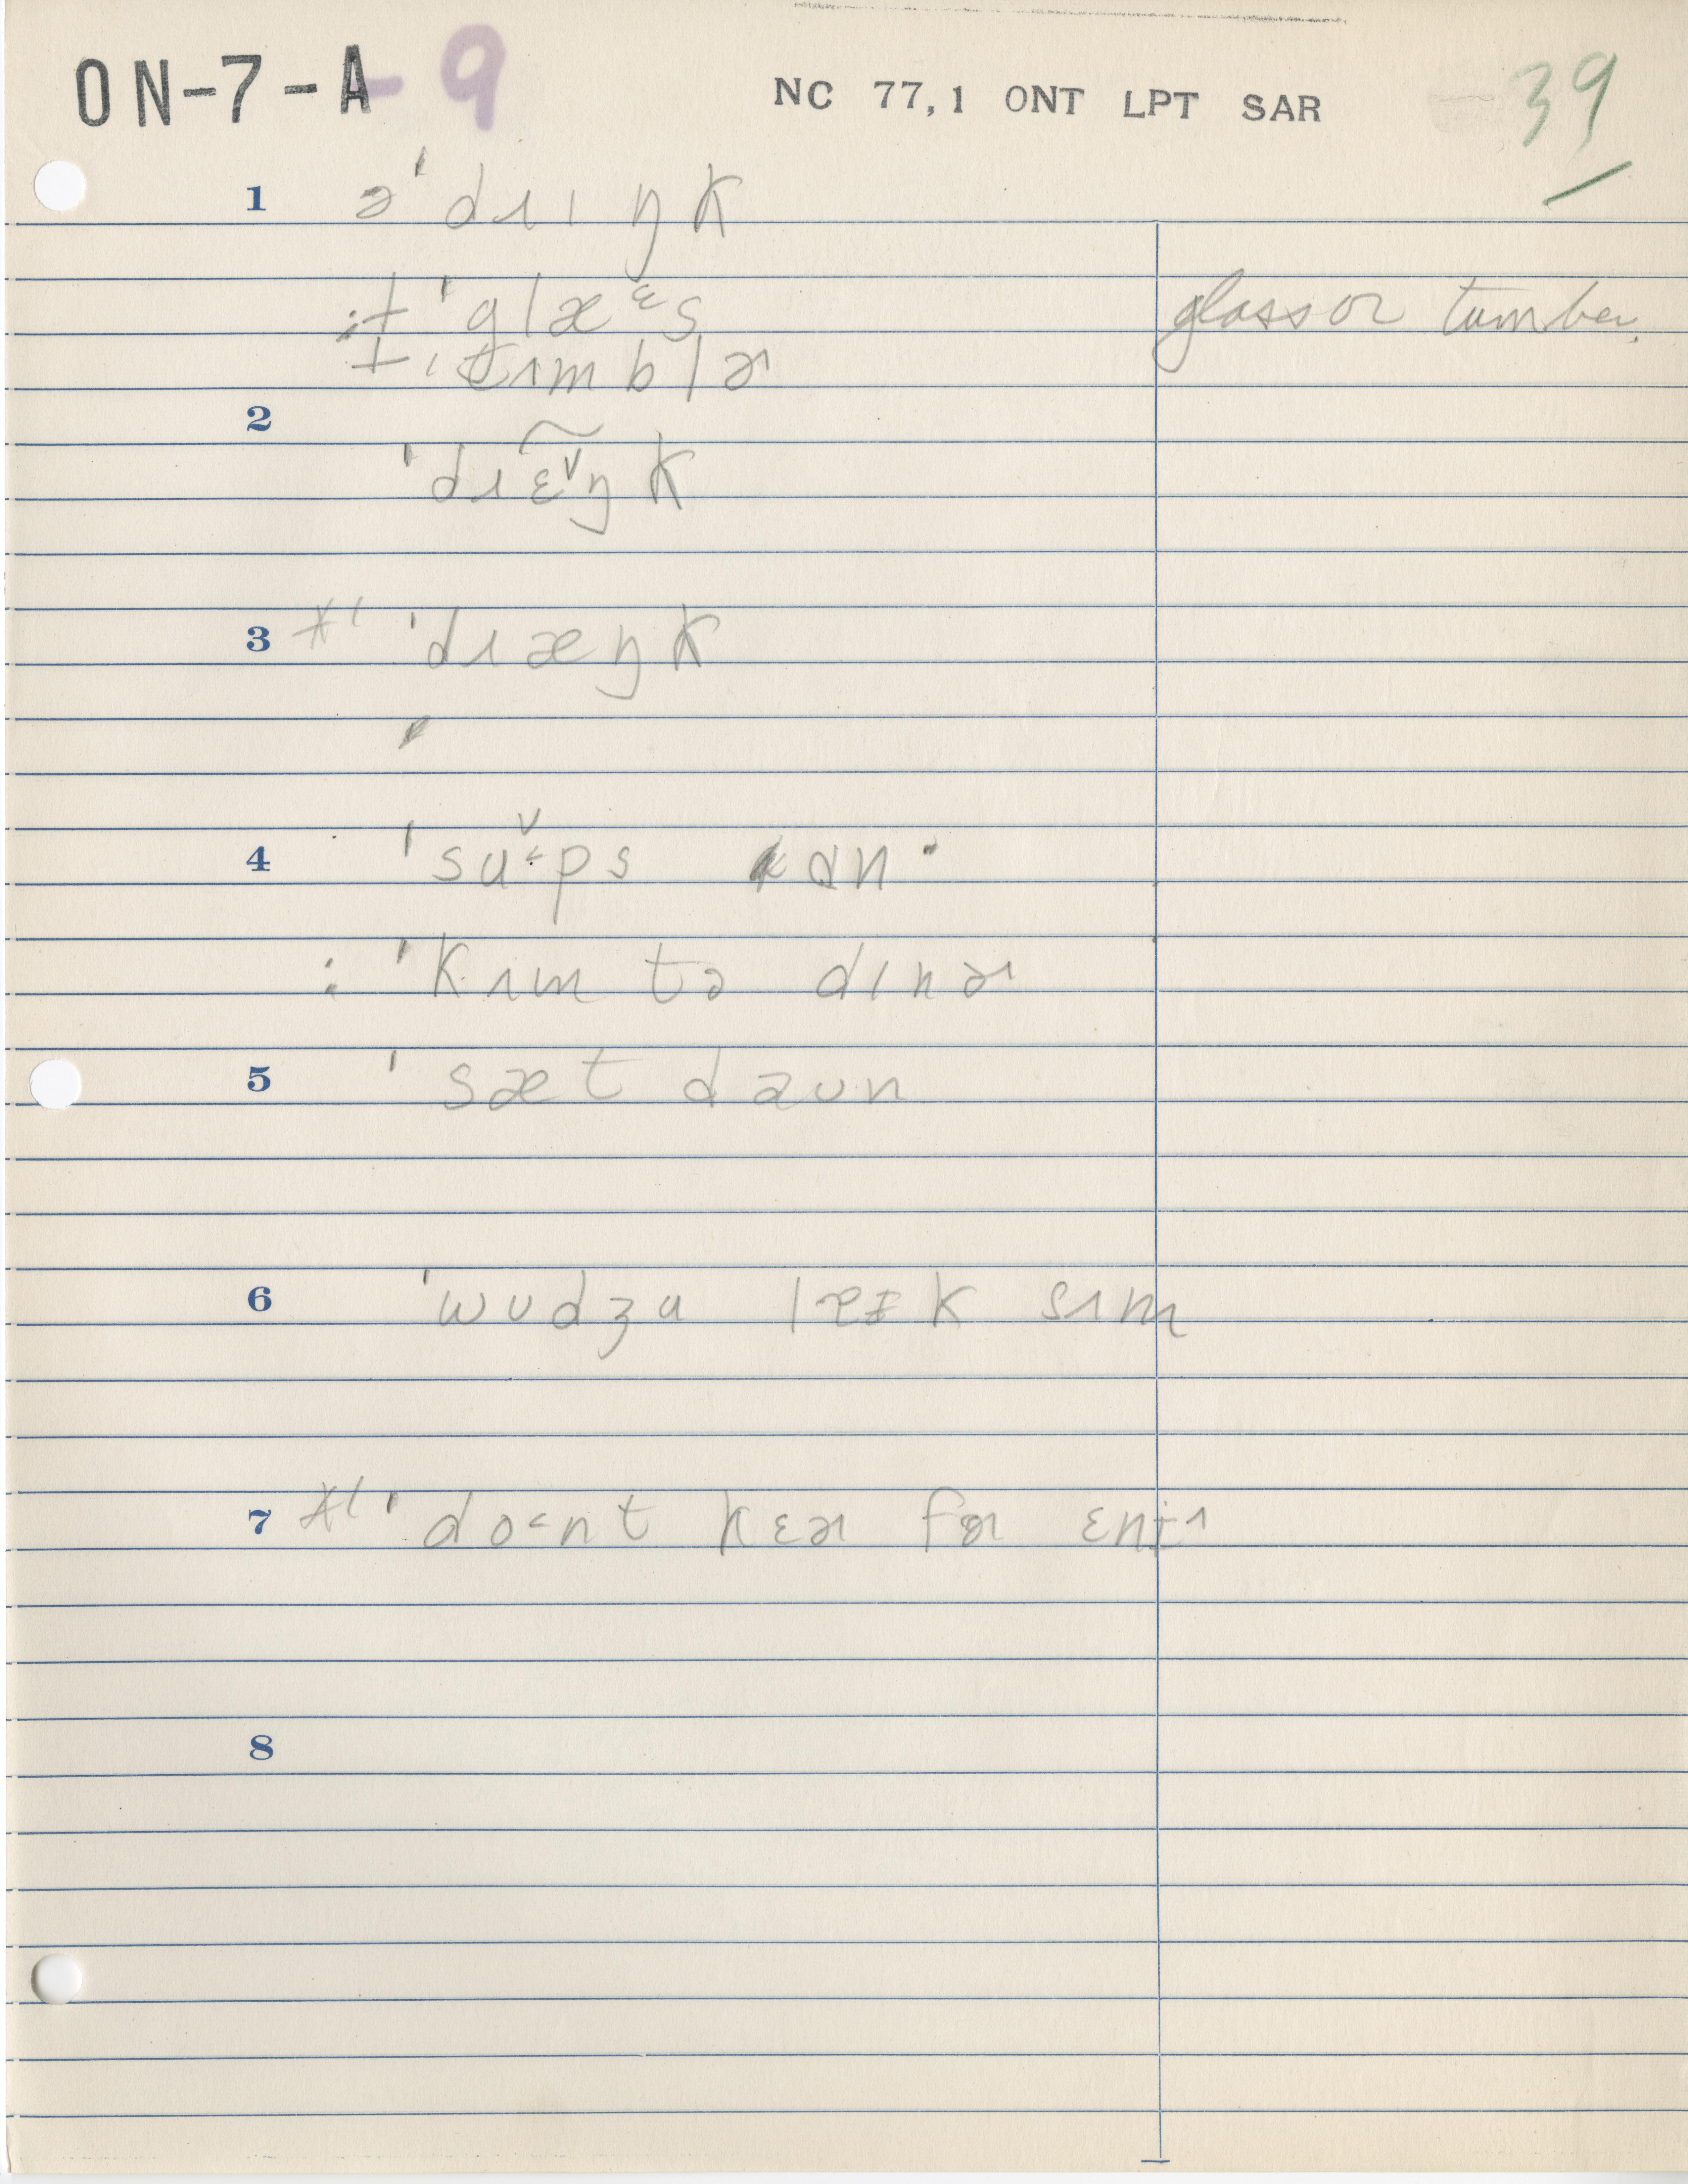 ON-7-A-9 NC 77,1 ONT LPT SAR 39
1 ə ˈdɹɪŋk
;† ˈglæᵋs glass or tumbler
† ˈtʌmblɚ
2
ˈdɹɛ̃ˇŋk
3 *ˈ ˈdɹæŋk
4 ˈsʉ˂ps ɑn·
: ˈkʌm tə dɪnɚ
5 ˈsæt daʊn
6 ˈwʊdʒu sʌm
7 *ˈ ˈdo˂nt kɛɚ fɚ
8